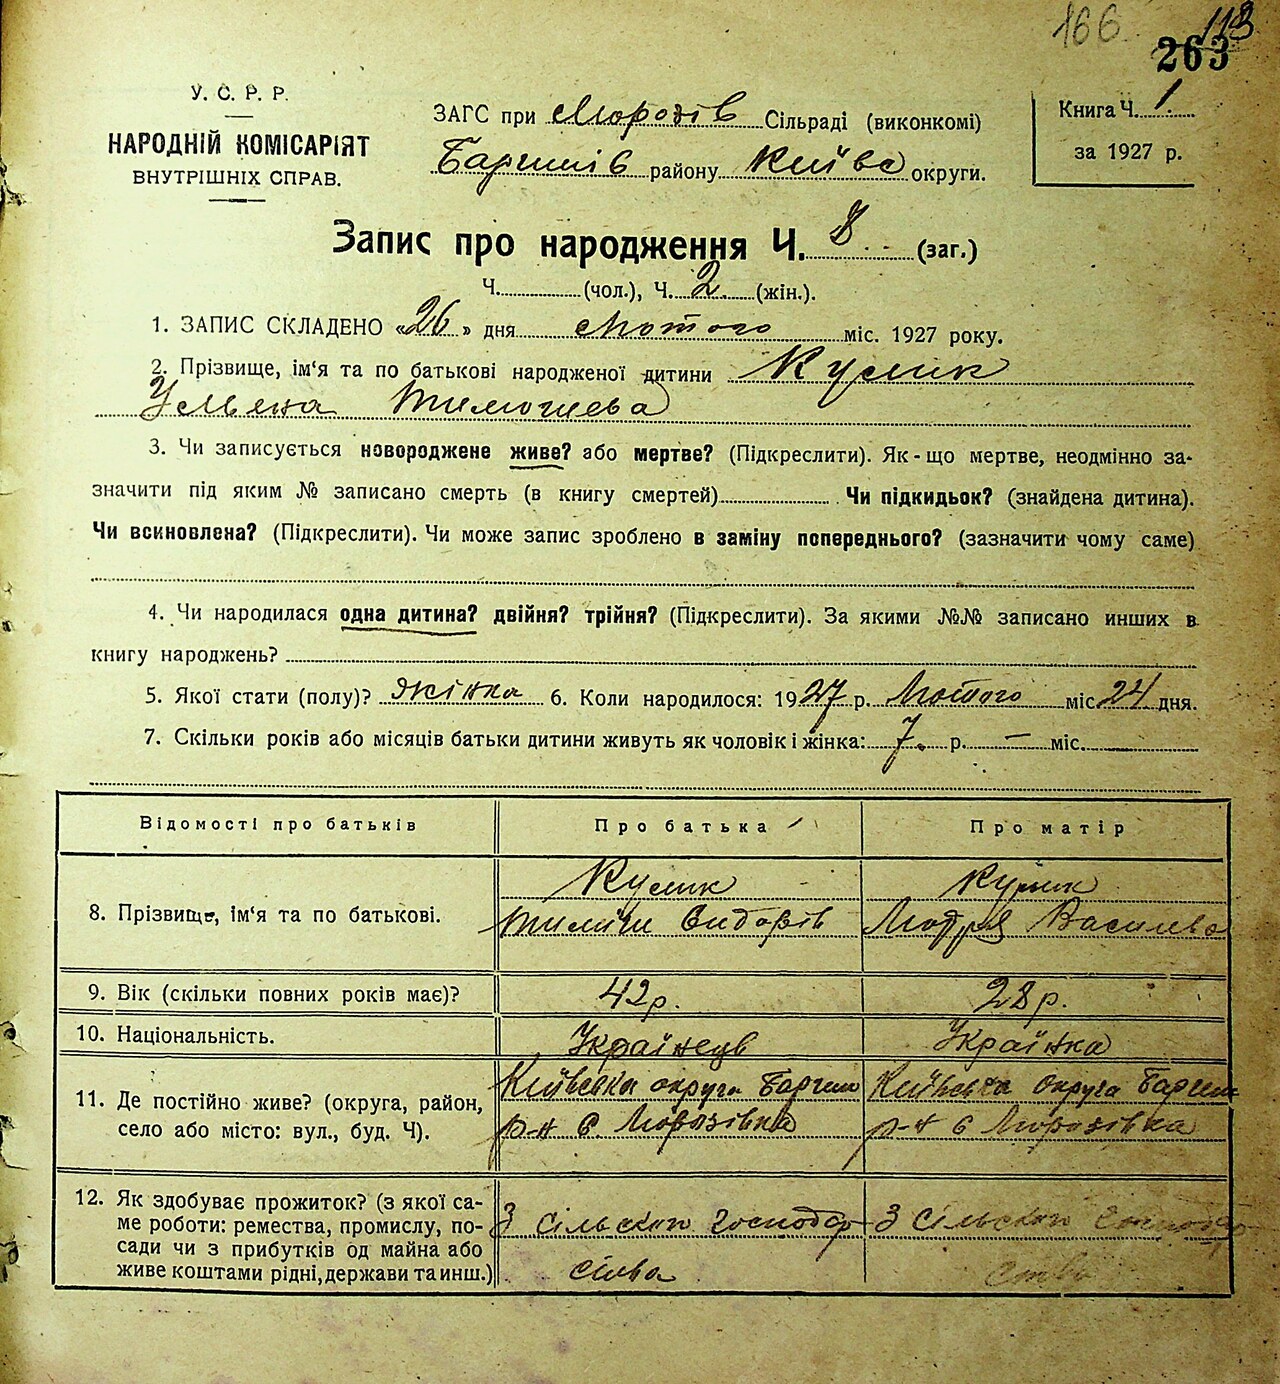 166 113
263
У. С. Р. Р.
НАРОДНІЙ КОМІСАРІЯТ
ВНУТРІШНІХ СПРАВ.
ЗАГС при Морозів Сільраді (виконкомі)
Баришів району Київс округи.
Книга Ч. 1
за 1927 р.
Запис про народження Ч. 8 (заг.)
Ч. (чол.), Ч. 2 (жін.).
1. ЗАПИС СКЛАДЕНО «26» дня Лютого міс. 1927 року.
2. Прізвище, ім'я та по батькові народженої дитини Кулик
Ульяна Тимошева
3. Чи записується новороджене живе? або мертве? (Підкреслити). Як-що мертве, неодмінно за-
значити під яким № записано смерть (в книгу смертей) Чи підкидьок? (знайдена дитина).
Чи всиновлена? (Підкреслити). Чи може запис зроблено в заміну попереднього? (зазначити чому саме)
4. Чи народилася одна дитина? двійня? трійня? (Підкреслити). За якими №№ записано инших в
книгу народжень?
5. Якої стати (полу)? жінка 6. Коли народилося: 1927 р. Лютого міс 24 дня.
7. Скільки років або місяців батьки дитини живуть як чоловік і жінка: 7. р. — міс.
Відомості про батьків Про батька Про матір
8. Прізвище, ім'я та по батькові.
Кулик Кулик
Тиміш Сидорів Мотря Василева
9. Вік (скільки повних років має)? 42 р. 28 р.
10. Національність. Українець Українка
11. Де постійно живе? (округа, район,
село або місто: вул., буд. Ч).
Київська округа Бариш Київська округа Бариш
р-н с. Морозівка р-н с Морозівка
12. Як здобуває прожиток? (з якої са-
ме роботи: ремества, промислу, по-
сади чи з прибутків од майна або
живе коштами рідні, держави та инш.)
З сільског господар З сільског господар
ства ства